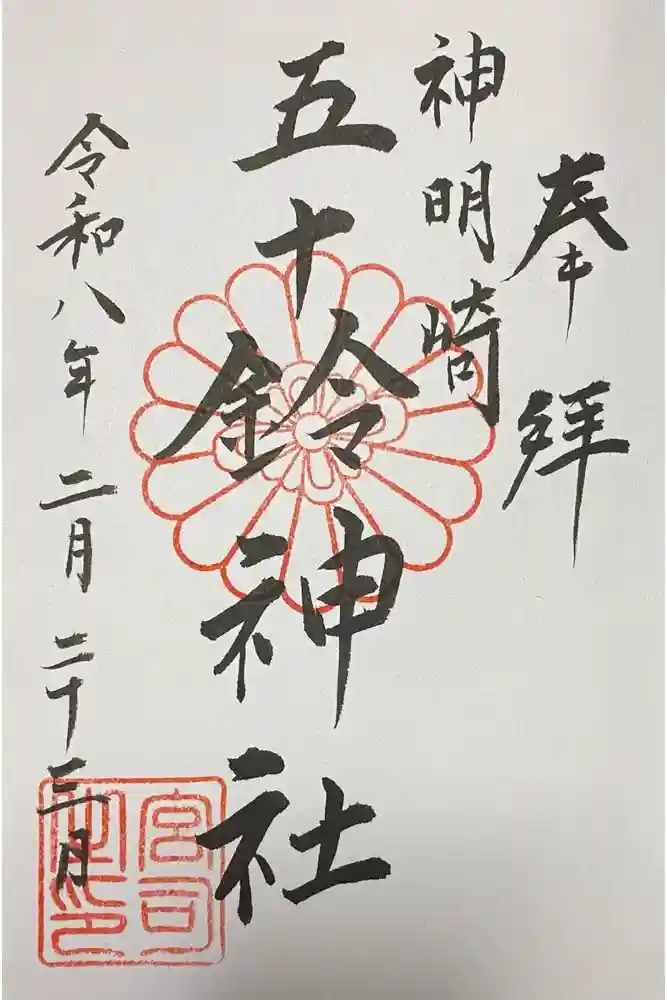 奉拝
神明崎
五十鈴神社
令和八年二月二十三日
宮司
之印